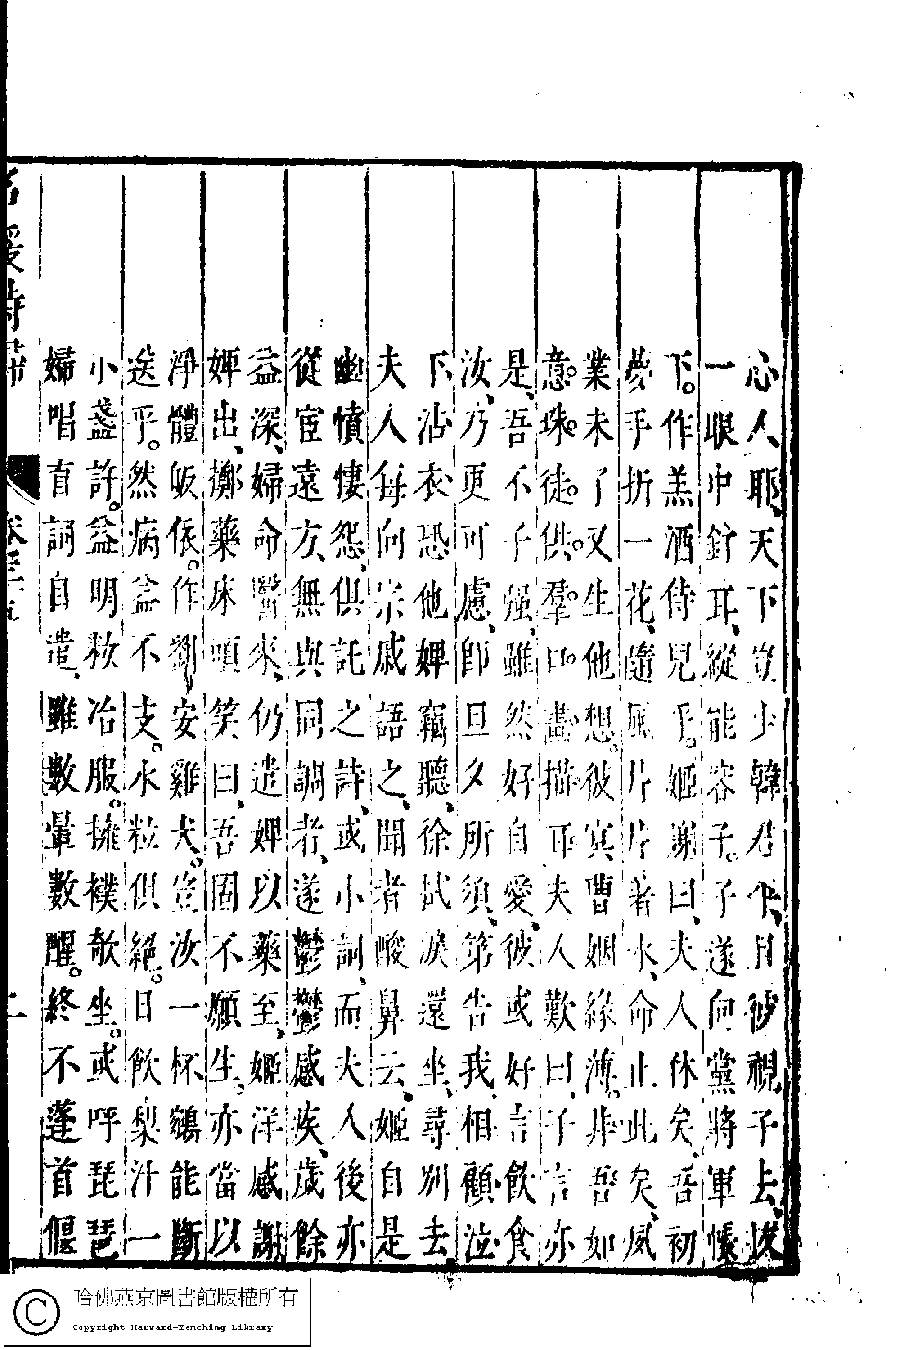 心人耶、天下豈少韓君平、且彼視子去、拔
一眼中釘耳、縱能容子。子遂向黨將軍帳
下。作羔酒侍兒乎。姬謝曰、夫人休矣、吾初
夢手折一花、隨風片片著水、命止此矣、夙
業未了、又生他想。彼冥曹姻緣薄、非吾如
意珠、徒供羣口畫描耳、夫人歎曰、子言亦
是、吾不子強、雖然好自愛、彼或好言飲食
汝、乃更可慮、即旦夕所須、第告我、相顧泣
下沾衣、恐他婢竊聽、徐拭淚還坐、尋別去、
夫人每向宗戚語之、聞者酸鼻云、姬自是
幽憤悽怨、俱託之詩、或小詞、而夫人後亦
從宦遠方、無與同調者、遂鬱鬱感疾、歲餘
益深、婦命醫來、仍遣婢以藥至、姬洋感謝
婢出、擲藥床頭、笑曰、吾固不願生、亦當以
淨體皈依。作劉安雞犬、豈汝一杯鴆能斷
送乎。然病益不支。水粒俱絕。日飲梨汁一
小盞許。益明粧冶服。擁襆欹坐。或呼琵琶
婦唱盲詞自遣、雖數暈數醒。終不蓬首偃
名媛詩歸
哈佛燕京圖書館版權所有
Copyright Harvard-Yenching Library